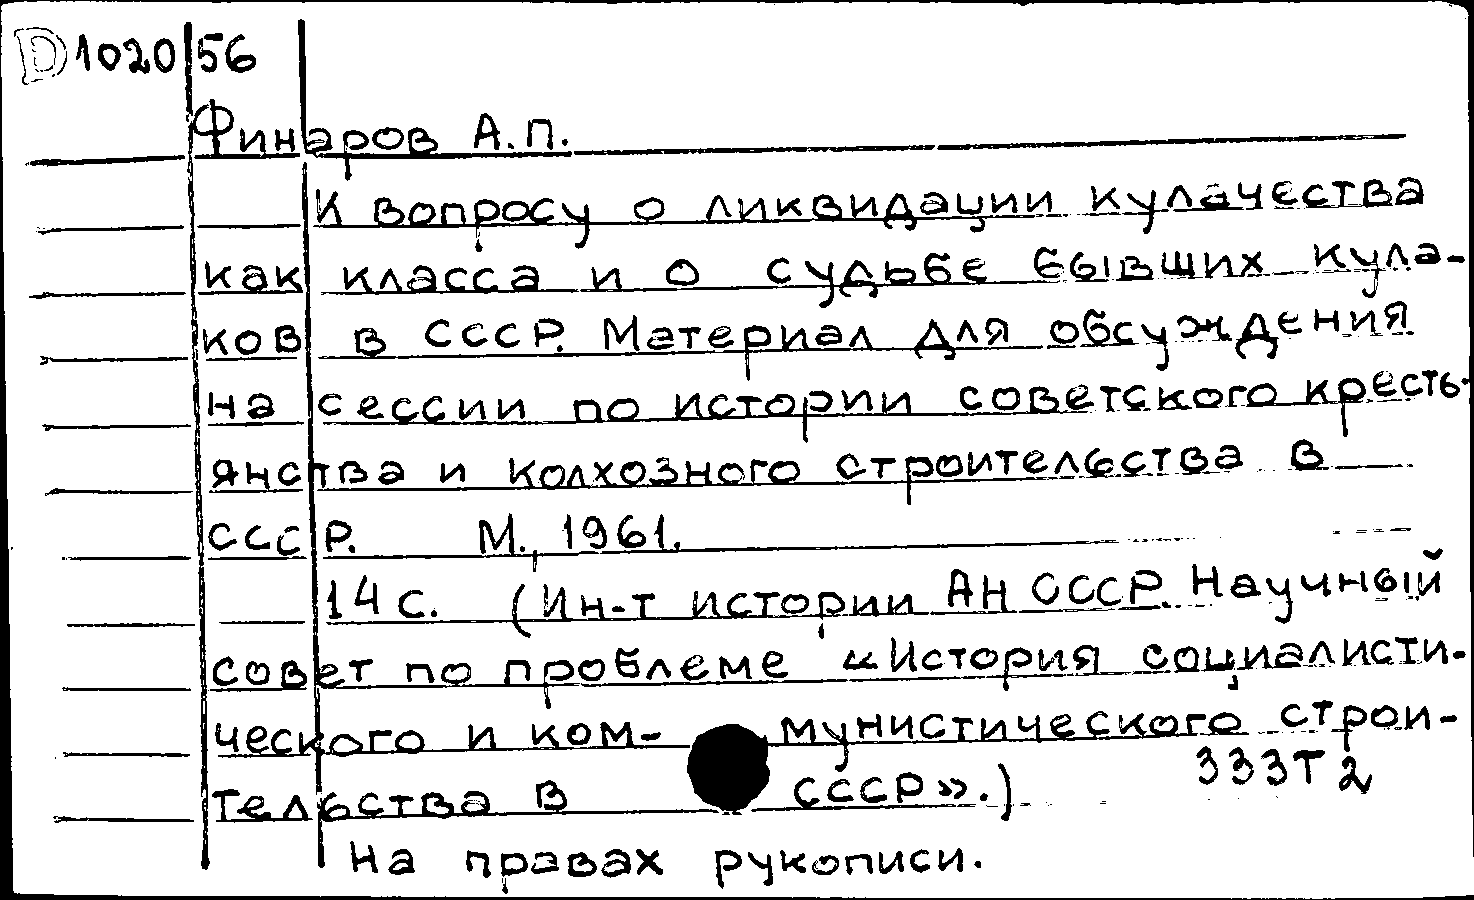 D1020 56
Финаров А.П.
К вопросу о ликвидации кулачества
как класса и о судьбе бывших кула-
ков в СССР. Материал для обсуждения
на сессии по истории советского кресть-
янства и колхозного строительства в
СССР. М., 1961.
14 с. (Ин-т истории АН СССР. Научный
совет по проблеме «История социалисти-
ческого и ком- мунистического строи-
тельства в СССР».)
333Т2
На правах рукописи.